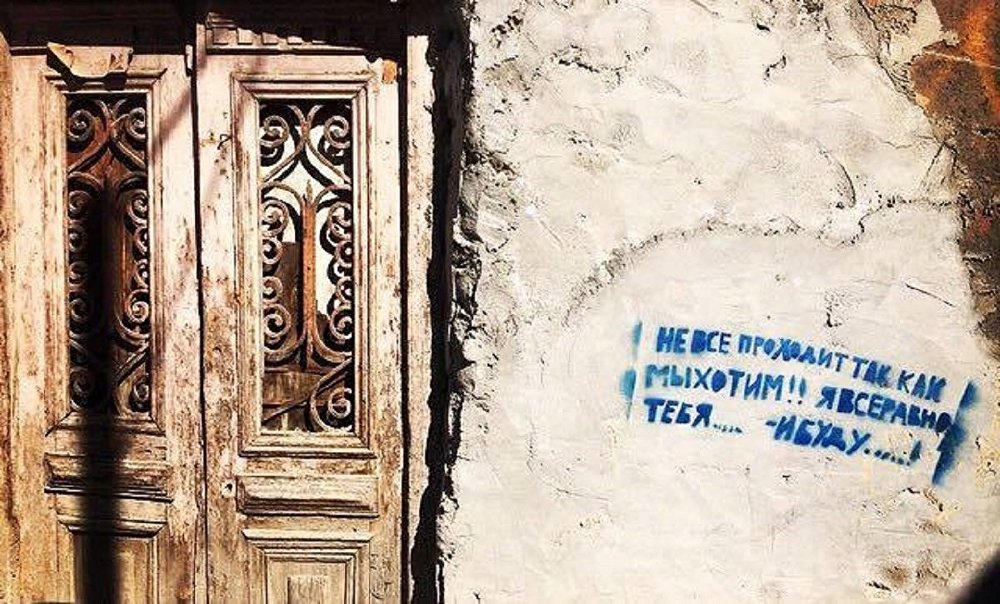 НЕ ВСЕ ПРОХОДИТ ТАК КАК
МЫ ХОТИМ!! Я ВСЕРАВНО
ТЕБЯ..... -И БУДУ.....!